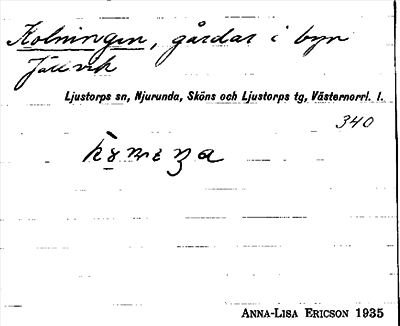 Kolningen, gårdar i byn
Jällvik
Ljustorps sn, Njurunda, Sköns och Ljustorps tg, Västernorrl. l.
340
ANNA-LISA ERICSON 1935